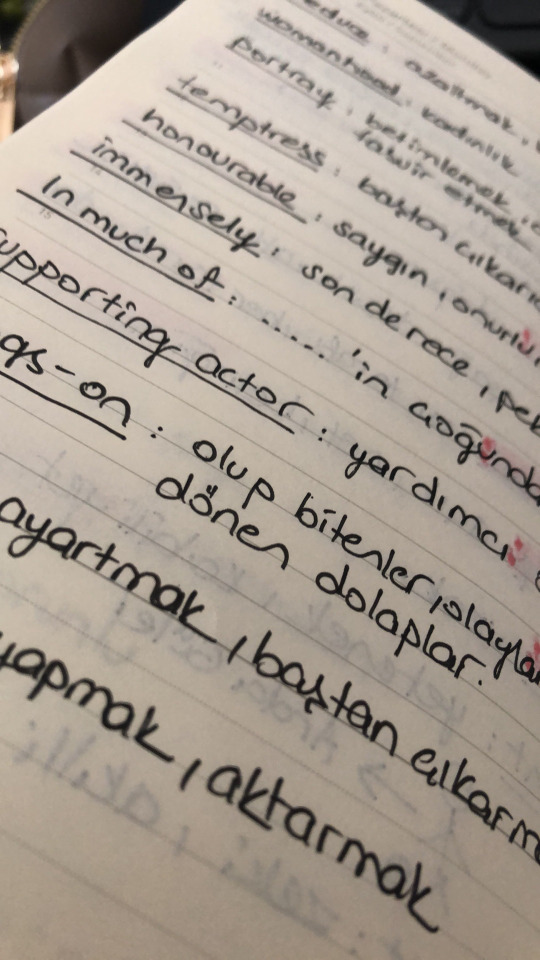 educe : azaltmak,
womanhood : kadınlık
portray : betimlemek,
tasvir etmek
temptress : baştan çıkarıc
honourable : saygın, onurlu,
immensely : son derece, pek
In much of : ...... 'in çoğunda
supporting actor : yardımcı
gs-on : olup bitenler, olaylar
dönen dolaplar.
ayartmak, baştan çıkarm
yapmak, aktarmak